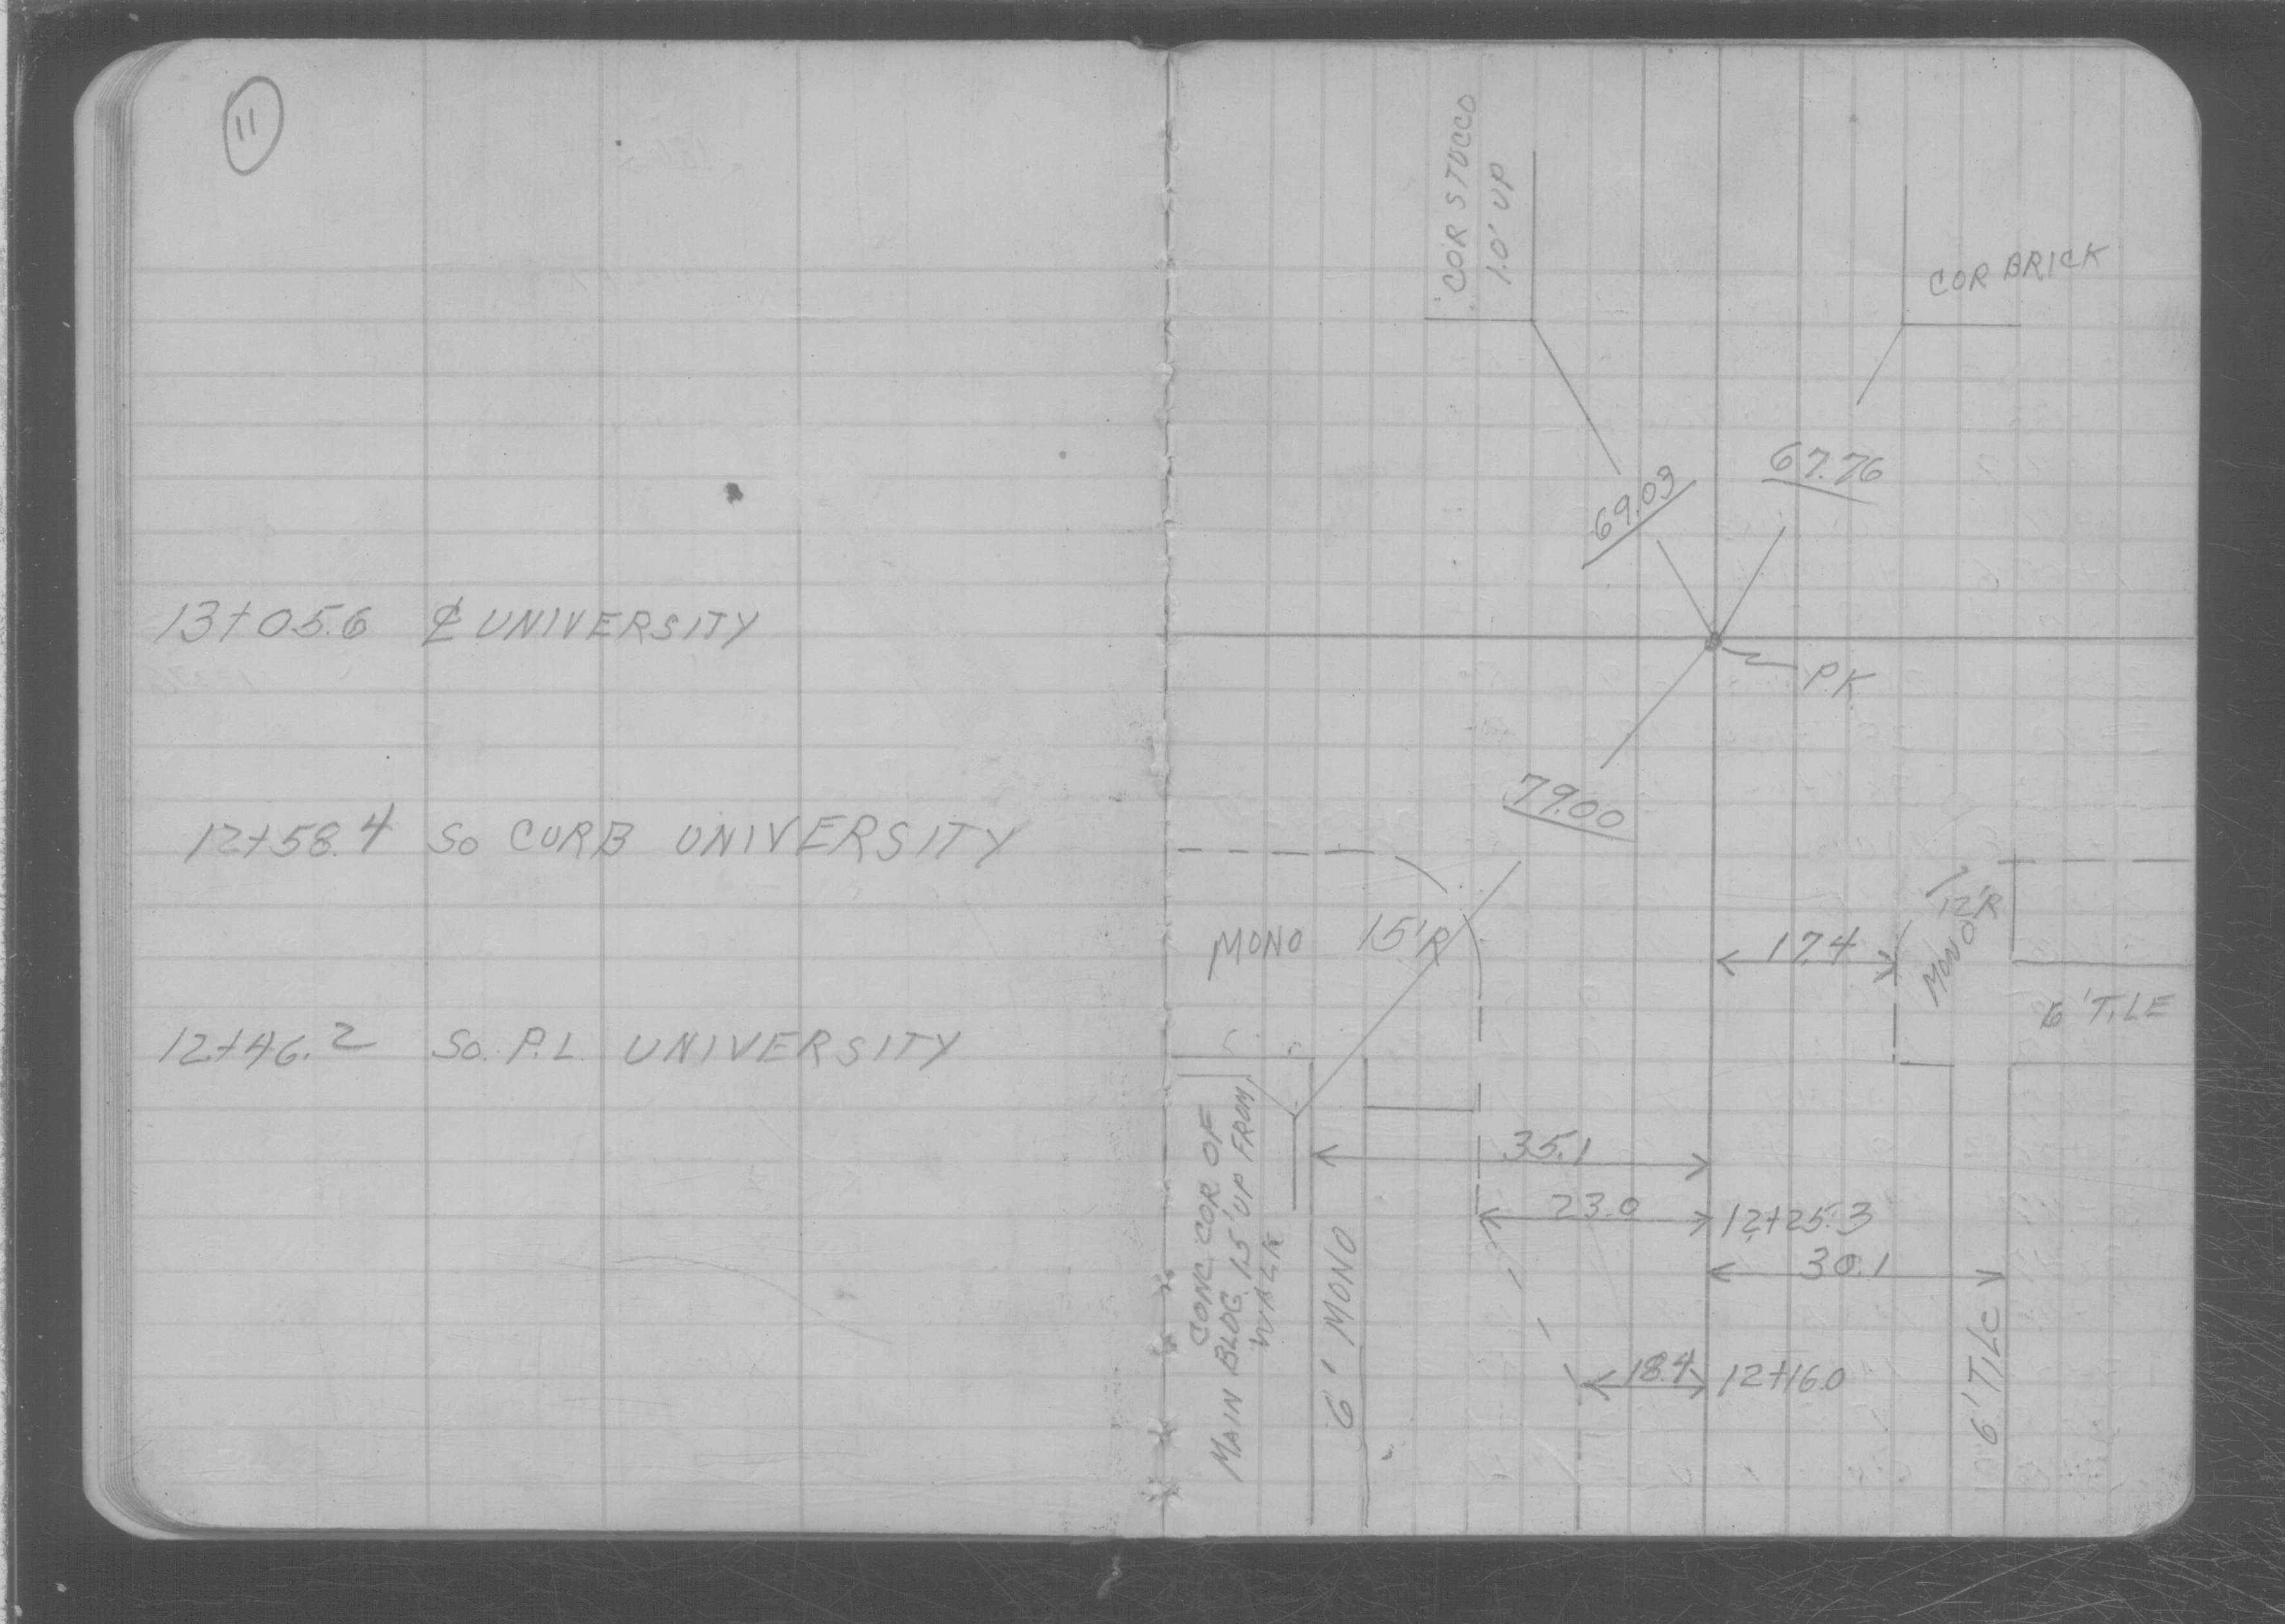 11
13+05.6 ₵ UNIVERSITY
12+58.4 So CURB UNIVERSITY
12+46.2 So. P.L. UNIVERSITY
COR STUCCO
1.0' UP
COR BRICK
69.03
67.76
P.K.
79.00
MONO
15'R
17.4
12'R
MONO
6' TILE
CONC. COR. OF
MAIN BLDG. 1.5' UP FROM
WALK
6' MONO
35.1
23.0
12+25.3
30.1
18.4
12+16.0
6' TILE